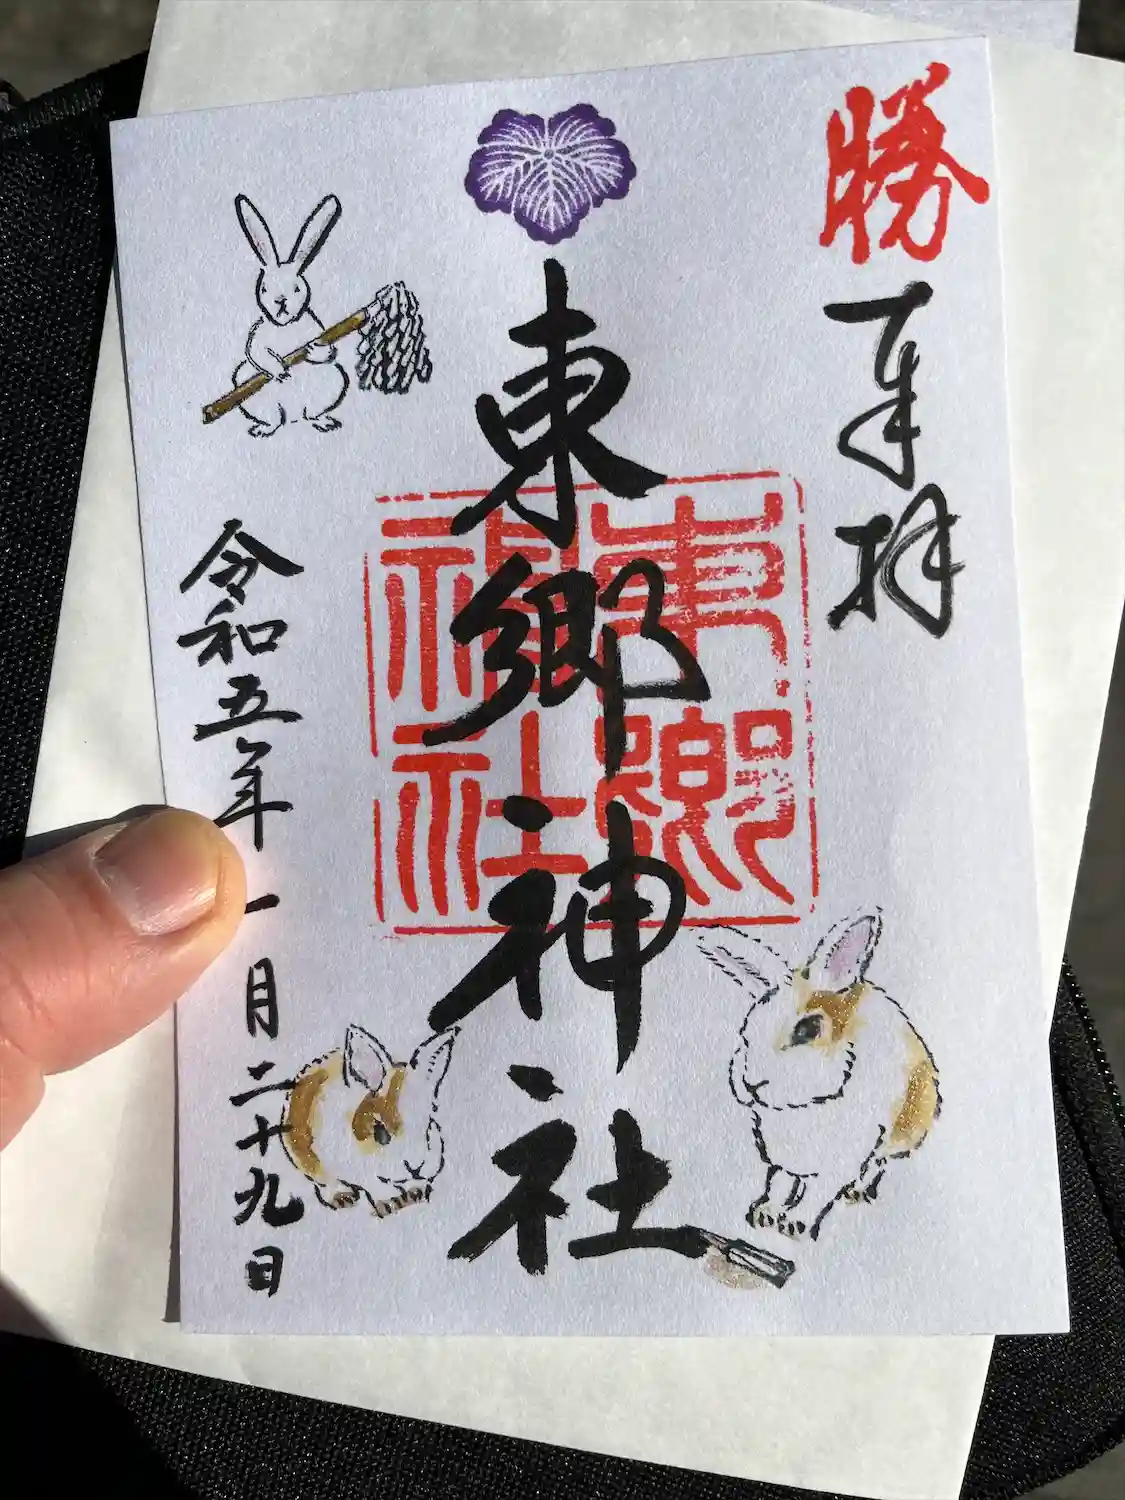 勝
奉拝
東郷神社
東郷神社
令和五年一月二十九日